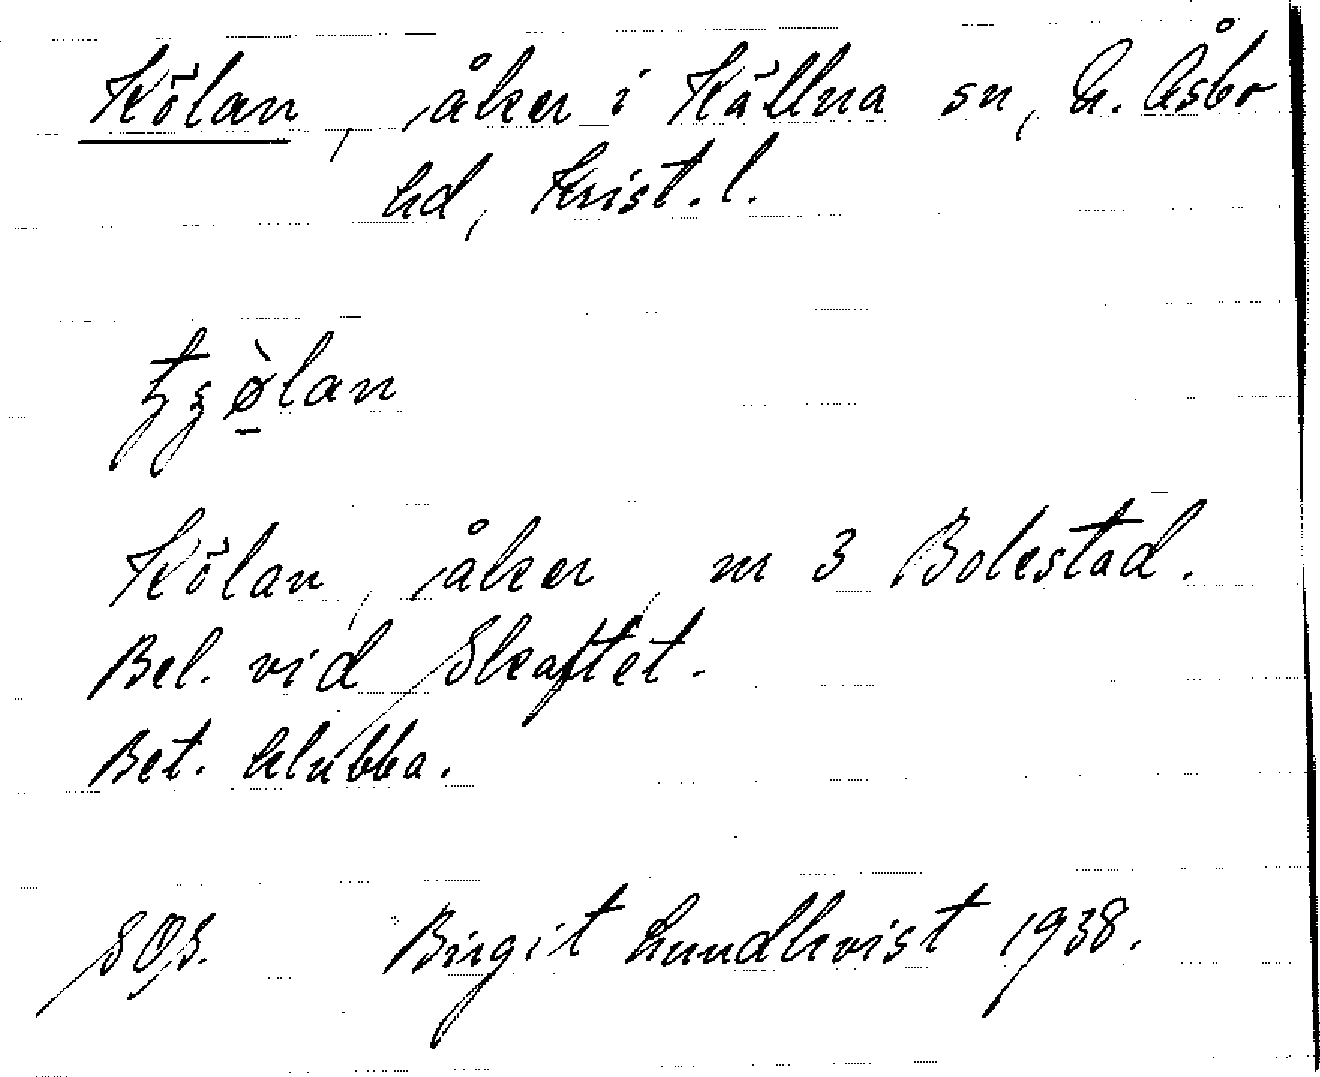 Kölan, åker i Källna sn, N. Åsbo
hd, Krist. l.
Kölan, åker, nr 3 Bolestad.
Bel. vid Skaftet.
Bet. klubba.
SOS. Birgit Lundkvist 1938.